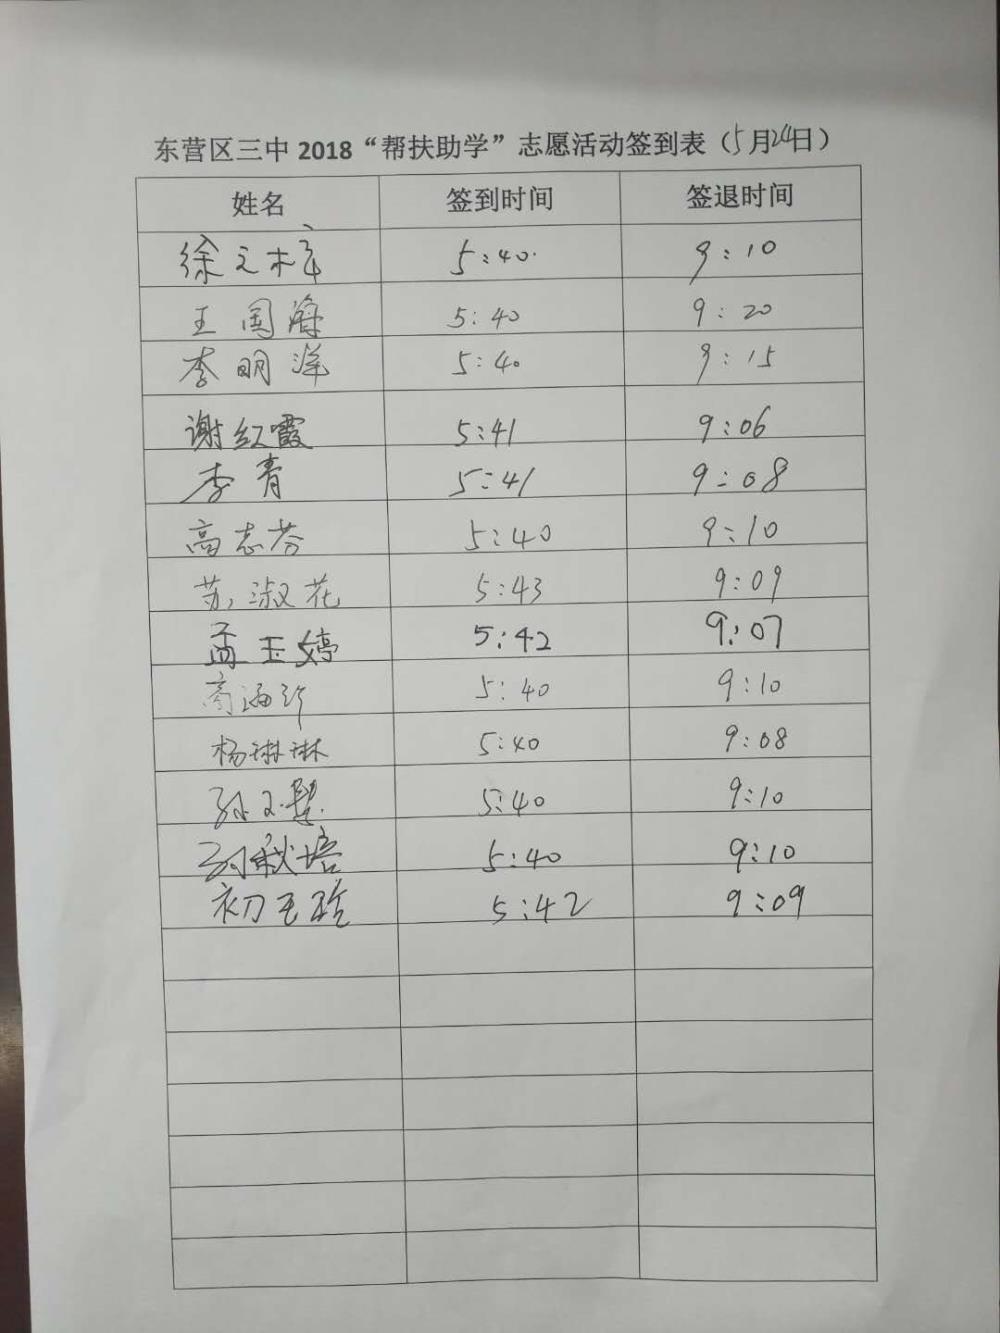 东营区三中2018“帮扶助学”志愿活动签到表（5月24日）
姓名 签到时间 签退时间
徐 5:40 9:10
王国海 5:40 9:20
李明洋 5:40 9:15
谢红霞 5:41 9:06
李青 5:41 9:08
高志芬 5:40 9:10
苏淑花 5:43 9:09
孟玉婷 5:42 9:07
5:40 9:10
杨琳琳 5:40 9:08
孙文 5:40 9:10
秋培 5:40 9:10
初玉 5:42 9:09